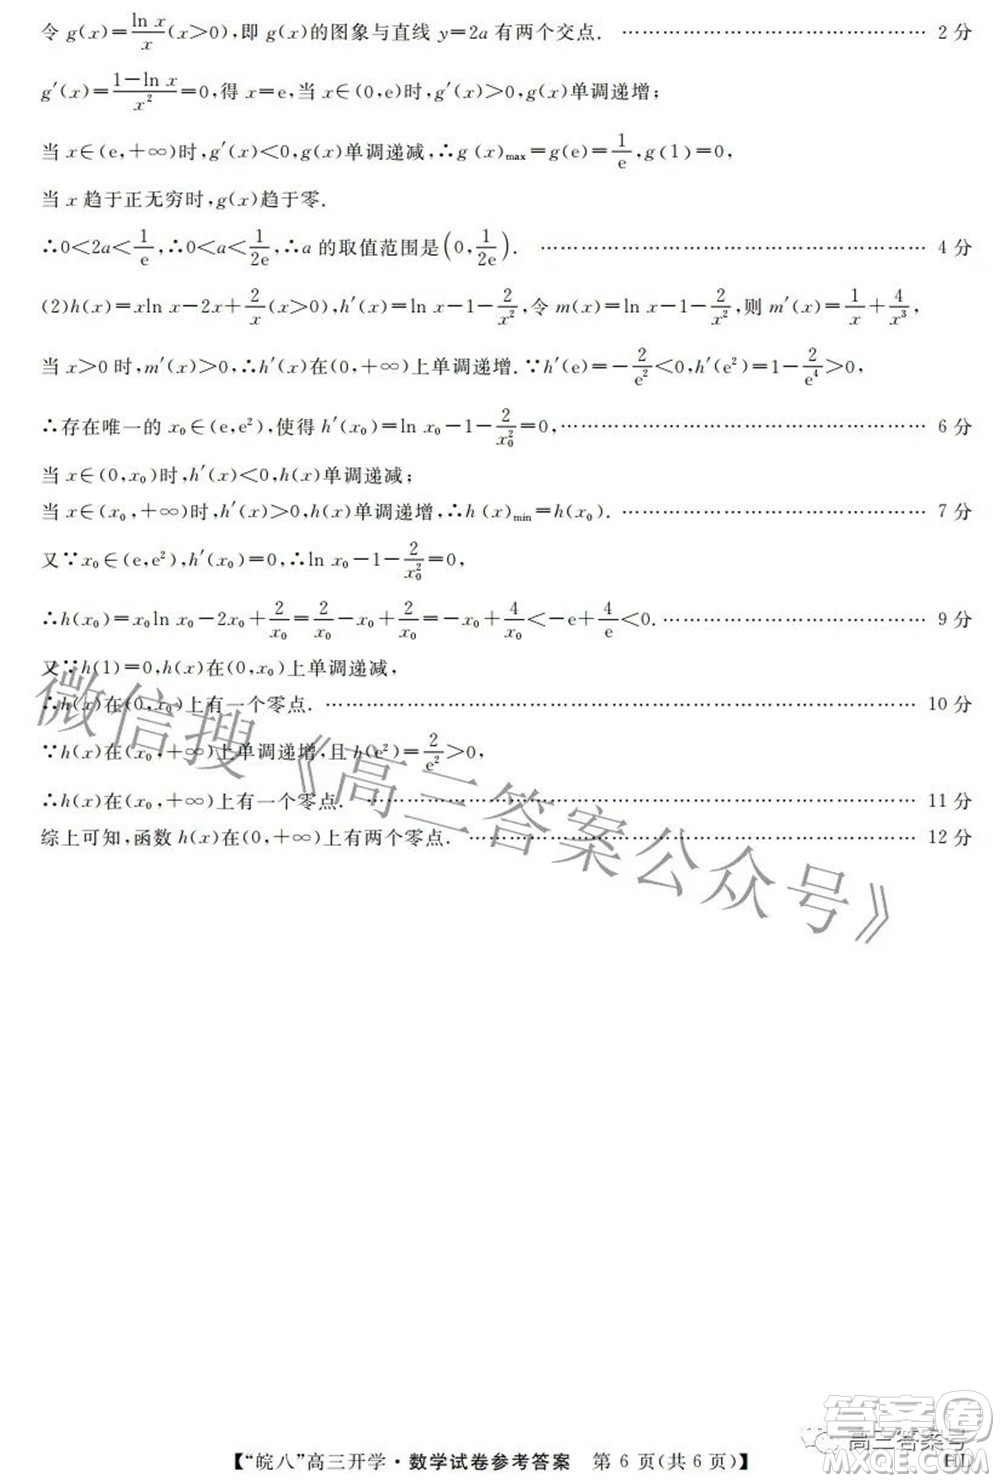 令 g(x)=ln x/x(x>0),即 g(x)的图象与直线 y=2a 有两个交点. …………………………………… 2 分
g′(x)=(1−ln x)/x²=0,得 x=e,当 x∈(0,e)时,g′(x)>0,g(x)单调递增;
当 x∈(e,+∞)时,g′(x)<0,g(x)单调递减,∴g(x)max=g(e)=1/e,g(1)=0,
当 x 趋于正无穷时,g(x)趋于零.
∴0<2a<1/e,∴0<a<1/2e,∴a 的取值范围是(0,1/2e). …………………………………… 4 分
(2)h(x)=xln x−2x+2/x(x>0),h′(x)=ln x−1−2/x²,令 m(x)=ln x−1−2/x²,则 m′(x)=1/x+4/x³,
当 x>0 时,m′(x)>0,∴h′(x)在(0,+∞)上单调递增.∵h′(e)=−2/e²<0,h′(e²)=1−2/e⁴>0,
∴存在唯一的 x₀∈(e,e²),使得 h′(x₀)=ln x₀−1−2/x₀²=0,…………………………………… 6 分
当 x∈(0,x₀)时,h′(x)<0,h(x)单调递减;
当 x∈(x₀,+∞)时,h′(x)>0,h(x)单调递增,∴h(x)min=h(x₀). …………………………………… 7 分
又∵x₀∈(e,e²),h′(x₀)=0,∴ln x₀−1−2/x₀²,
∴h(x₀)=x₀ln x₀−2x₀+2/x₀=2/x₀−x₀+2/x₀=−x₀+4/x₀<−e+4/e<0.…………………………………… 9 分
又∵h(1)=0,h(x)在(0,x₀)上单调递减,
∴h(x)在(0,x₀)上有一个零点. …………………………………… 10 分
∵h(x)在(x₀,+∞)上单调递增,且 h(e²)=2/e²>0,
∴h(x)在(x₀,+∞)上有一个零点. …………………………………… 11 分
综上可知,函数 h(x)在(0,+∞)上有两个零点. …………………………………… 12 分
微信搜《高三答案公众号》
答案圈
高三答案号
MXQE.COM
【“皖八”高三开学·数学试卷参考答案 第 6 页(共 6 页)】 HD